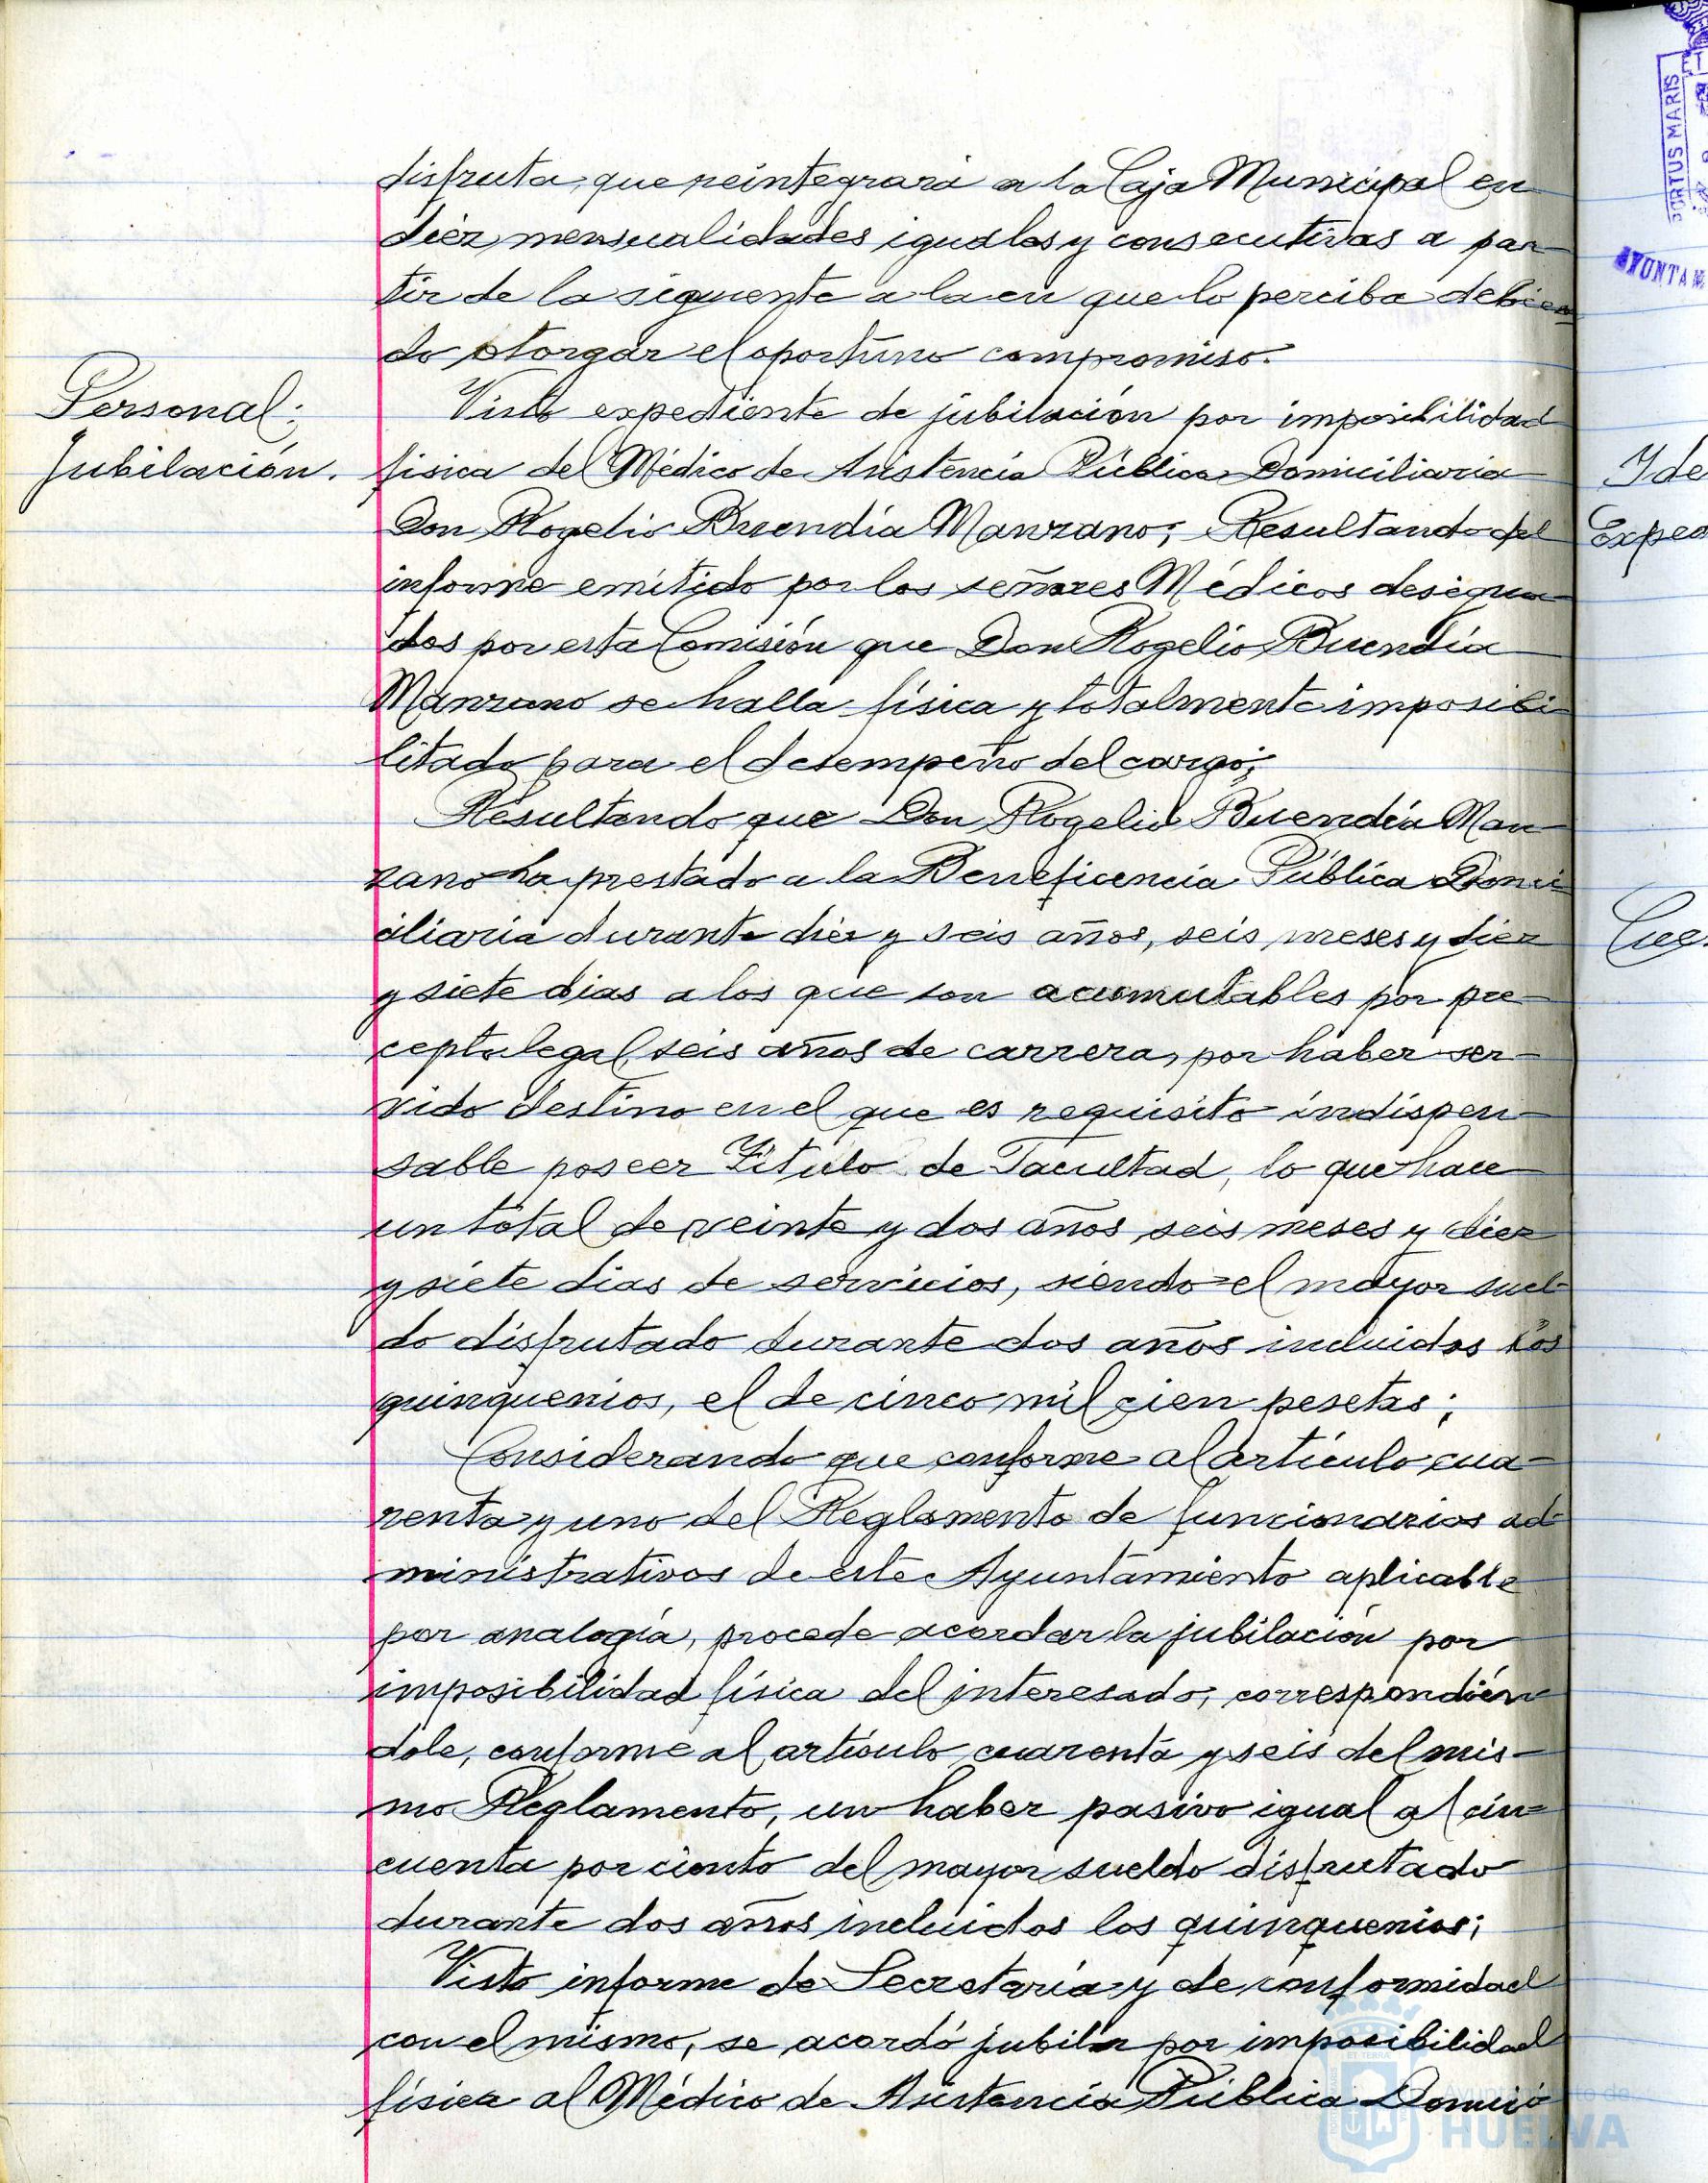 disfruta, que reintegrará a la Caja Municipal en
diez mensualidades iguales y consecutivas a par-
tir de la siguiente a la en que lo perciba debien
do otorgar el oportuno compromiso.
Personal:
Jubilación.
Visto expediente de jubilación por imposibilidad
física del Médico de Asistencia Pública Domiciliaria
Don Rogelio Buendía Manzano; Resultando del
informe emitido por los señores Médicos designa-
dos por esta Comisión que Don Rogelio Buendía
Manzano se halla física y totalmente imposibi-
litado para el desempeño del cargo;
Resultando que Don Rogelio Buendía Man-
zano ha prestado a la Beneficencia Pública Domi-
ciliaria durante diez y seis años, seis meses y diez
y siete dias a los que son acumulables por pre-
cepto legal, seis años de carrera, por haber ser-
vido destino en el que es requisito indispen-
sable poseer Título de Facultad, lo que hace
un total de veinte y dos años seis meses y diez
y siete dias de servicios, siendo el mayor suel-
do disfrutado durante dos años incluidos los
quinquenios, el de cinco mil cien pesetas;
Considerando que conforme al artículo cua-
renta y uno del Reglamento de funcionarios ad-
ministrativos de este Ayuntamiento aplicable
por analogía, procede acordar la jubilación por
imposibilidad física del interesado, correspondién
dole, conforme al artículo cuarenta y seis del mis-
mo Reglamento, un haber pasivo igual al cin-
cuenta por ciento del mayor sueldo disfrutado
durante dos años incluidos los quinquenios;
Visto informe de Secretaría y de conformidad
con el mismo, se acordó jubilar por imposibilidad
física al Médico de Asistencia Pública Domici
Ayuntamiento de
HUELVA
PORTUS MARIS
AYUNTAM
Ide
Exped